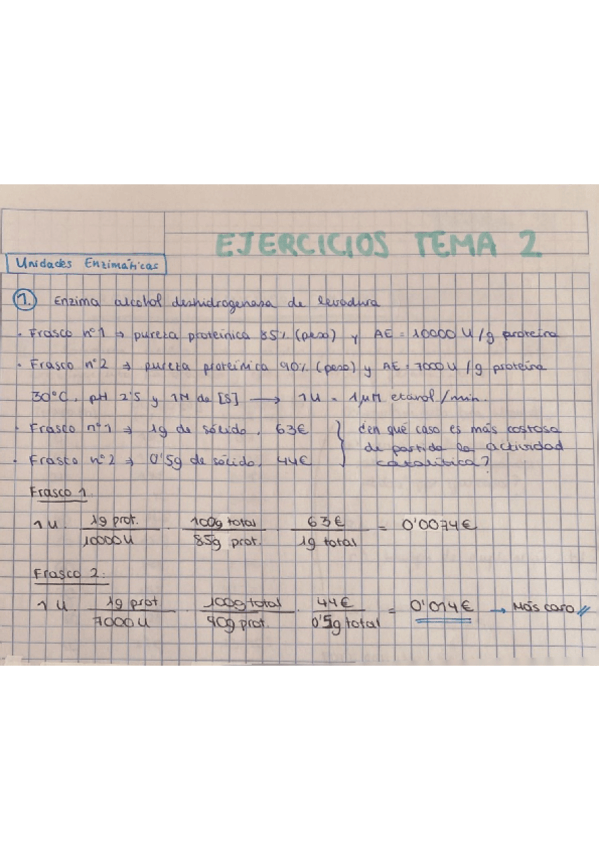 EJERCICIOS TEMA 2
Unidades Enzimáticas
1. Enzima alcohol deshidrogenasa de levadura
· Frasco nº1 → pureza proteínica 85% (peso) y AE = 10000 U/g proteína
· Frasco nº2 → pureza proteínica 90% (peso) y AE = 7000 U/g proteína
30ºC, pH 2'5 y 1M de [S] → 1U = 1μM etanol/min.
· Frasco nº1 → 1g de sólido, 63€
· Frasco nº2 → 0'5g de sólido, 44€
¿en qué caso es más costosa
de partida la actividad
catalítica?
Frasco 1.
1 U · 1g prot. / 10000 U · 100g total / 85g prot. · 63€ / 1g total = 0'0074€
Frasco 2.
1 U · 1g prot / 7000 U · 100g total / 90g prot. · 44€ / 0'5g total = 0'014€ → Más caro